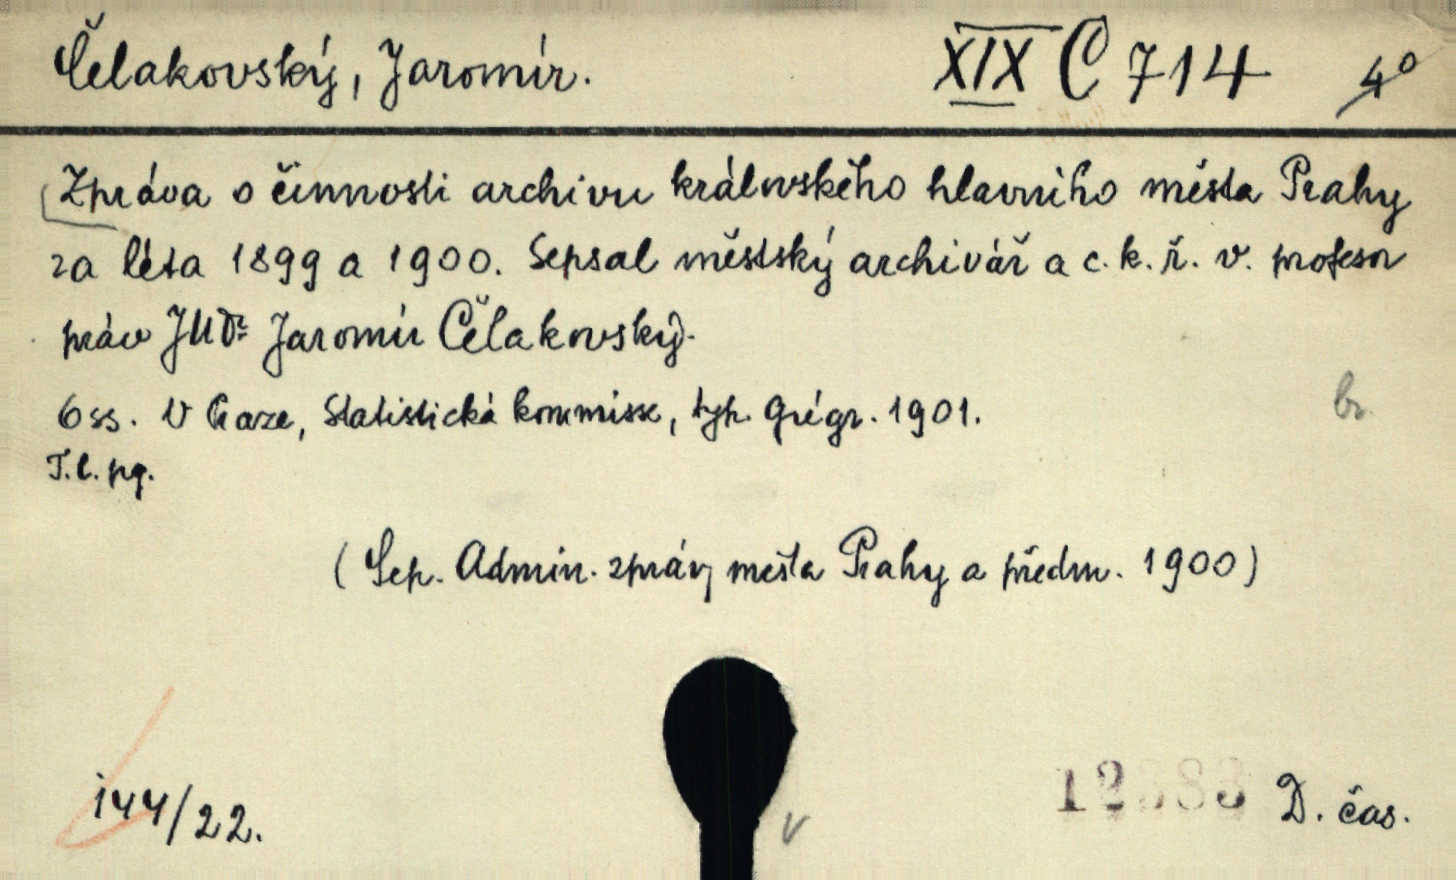 Čelakovský, Jaromír. XIX C 714 4°
Zpráva o činnosti archivu královského hlavního města Prahy
za léta 1899 a 1900. Sepsal městský archivář a c. k. ř. v. profesor
práv JUDr Jaromír Čelakovský.
6 ss. V Praze, Statistická kommisse, typ. Grégr. 1901. br.
T. l. pg.
(Sep. Admin. zprávy města Prahy a předm. 1900)
144/22. D. čas.